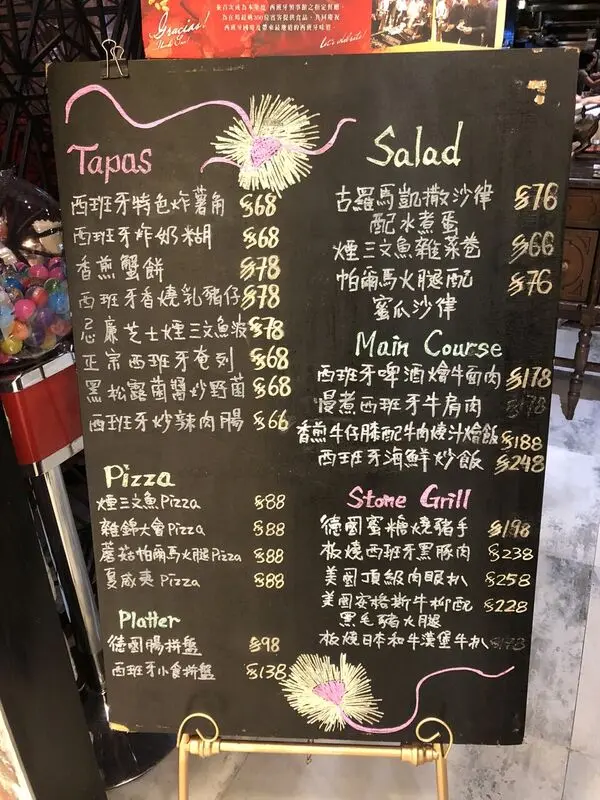 Gracias!
Tapas
西班牙特色炸薯角 $68
西班牙炸奶糊 $68
香煎蟹餅 $78
西班牙香燒乳豬仔 $78
忌廉芝士煙三文魚波 $78
正宗西班牙奄列 $68
黑松露菌醬炒野菌 $68
西班牙炒辣肉腸 $66
Pizza
煙三文魚Pizza $88
雜錦大會Pizza $88
蘑菇帕爾馬火腿Pizza $88
夏威夷Pizza $88
Platter
德國腸拼盤 $98
西班牙小食拼盤 $138
Salad
古羅馬凱撒沙律 $76
配水煮蛋
煙三文魚雜菜卷 $66
帕爾馬火腿配 $76
蜜瓜沙律
Main Course
西班牙啤酒燴牛面肉 $178
慢煮西班牙牛肩肉 $178
香煎牛仔膝配牛肉燒汁燴飯 $188
西班牙海鮮炒飯 $248
Stone Grill
德國蜜糖燒豬手 $198
板燒西班牙黑豚肉 $238
美國頂級肉眼扒 $258
美國安格斯牛柳配 $228
黑毛豬火腿
板燒日本和牛漢堡牛扒